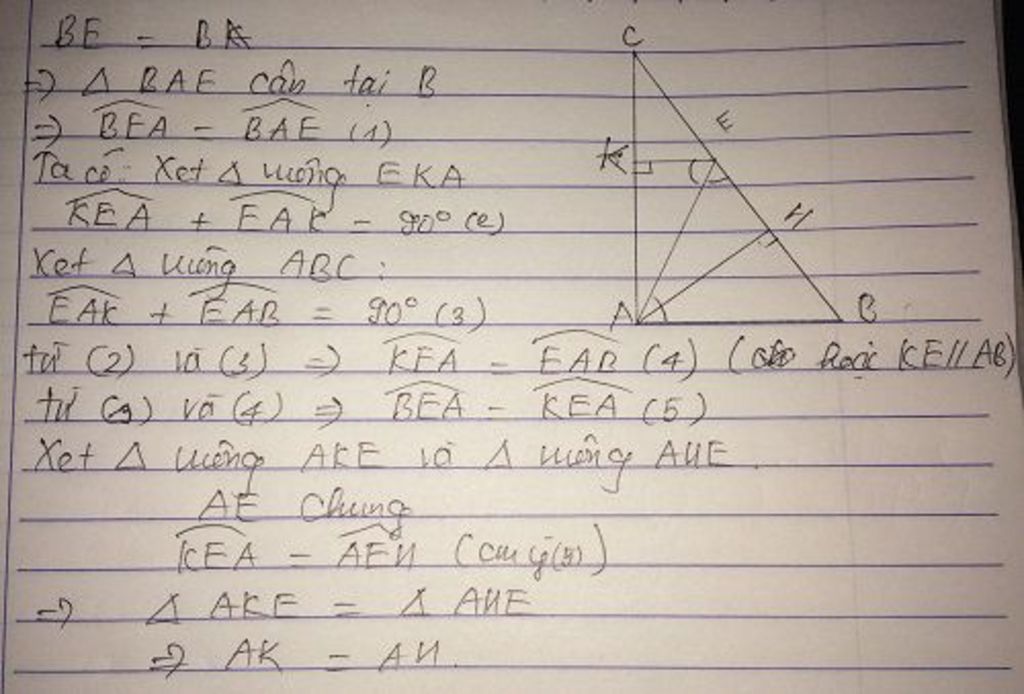 BE = BA
=> Δ BAE cân tại B
=> BEA = BAE (1)
Ta có: Xét Δ vuông EKA
KEA + EAK = 90° (2)
Xét Δ vuông ABC :
EAK + EAB = 90° (3)
từ (2) và (3) => KEA = EAB (4) ( hoặc KE // AB)
từ (1) và (4) => BEA = KEA (5)
Xét Δ vuông AKE và Δ vuông AHE .
AE Chung
KEA = AEH (5)
=> Δ AKE = Δ AHE
=> AK = AH.
C
E
K
H
A
B